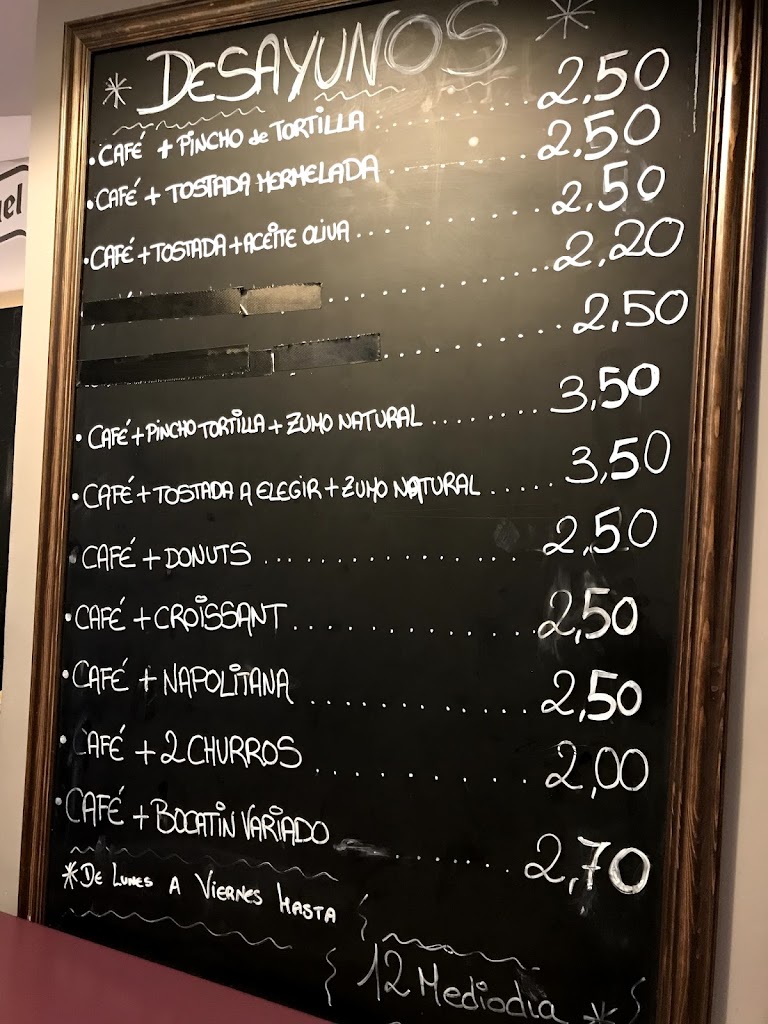 * DESAYUNOS *
• CAFÉ + PINCHO de TORTILLA ........... 2.50
• CAFÉ + TOSTADA MERMELADA ........... 2.50
• CAFÉ + TOSTADA + ACEITE OLIVA ........... 2.50
........... 2.20
........... 2,50
• CAFÉ + PINCHO TORTILLA + ZUMO NATURAL ........ 3,50
• CAFÉ + TOSTADA A ELEGIR + ZUMO NATURAL ...... 3,50
• CAFÉ + DONUTS ........... 2,50
• CAFÉ + CROISSANT ........... 2,50
• CAFÉ + NAPOLITANA ........... 2,50
• CAFÉ + 2 CHURROS ........... 2,00
• CAFÉ + BOCATIN VARIADO ........ 2,70
* DE LUNES A VIERNES HASTA
12 Mediodia *